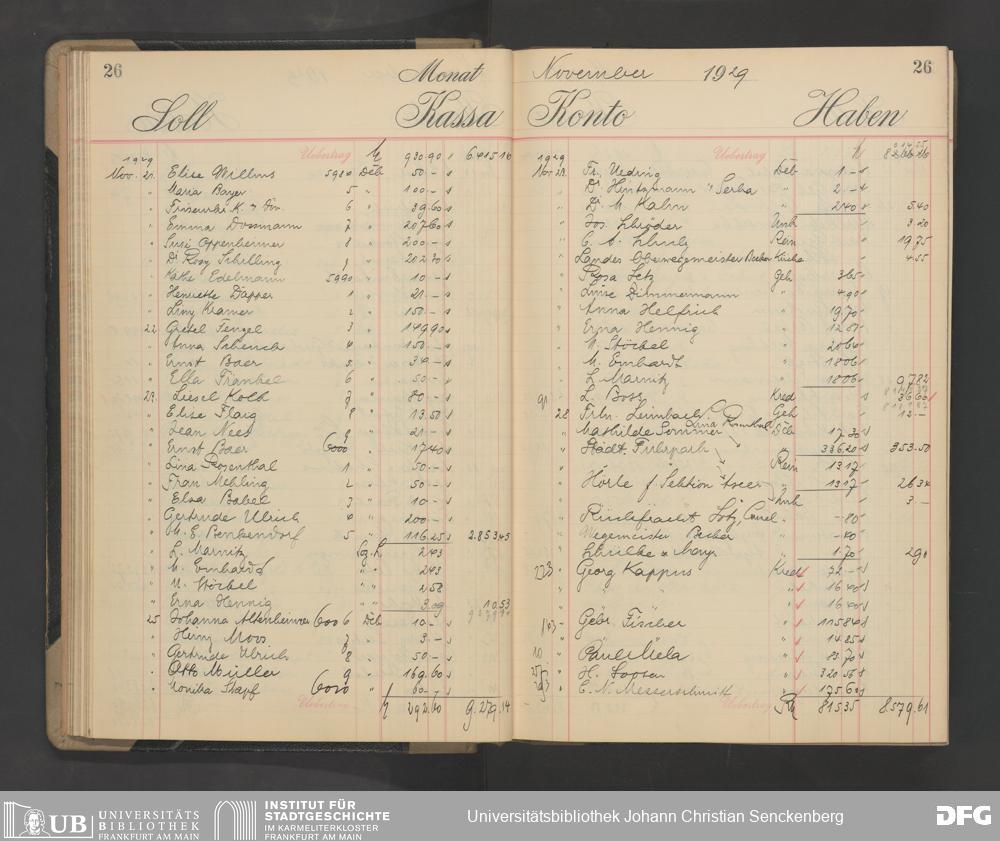 26
Monat
Soll Kassa
Uebertrag 930.90 6.415.16
1929
Nov. 21. Elise Willms 5980 Deb 50.-
" Maria Bayer 5 " 100.-
" K. 6 " 39.60
" Emma Dossmann 7 " 207.60
" Susi Oppenheimer 8 " 200.-
" Dr. Rosy Schilling 9 " 202.70
" Käthe Edelmann 5990 " 10.-
" Henriette Dapper 1 " 21.-
" Liny Kramer 2 " 150.-
22. Gretel Fenzel 3 " 149.90
" Anna Schenck 4 " 150.-
" Ernst Baer 5 " 34.-
" Ella Fränkel 6 " 50.-
23. Liesel Kolb 7 " 80.-
" Elise Flaig 8 " 13.50
" Jean Nees 9 " 21.-
" Ernst Baer 6000 " 17.40
" Lina Rosenthal 1 " 50.-
" Fran Mehling 2 " 50.-
" Elsa Babel 3 " 10.-
" Gertrude Ulrich 4 " 200.-
" M. E. Benkendorf 5 " 116.25 2.853.45
" L. Marnitz 2.43
" M. Emhardt " 2.43
" M. Stöckel " 2.58
" Erna Hennig " 3.09 10.53
25 Johanna Altenheimer 6006 Deb 10.-
" Heinz Moos 7 " 3.-
" Gertrude Ulrich 8 " 50.-
" Otto Müller 9 " 169.60
" Monika Stapf 6010 60.-
Uebertrag 292.60 9.279.14
November 1929
26
Konto Haben
Uebertrag
1929
Nov. 23. Fr. Uedring Deb 1.-
" Dr. Hintzmann " Serba " 2.-
" Dr. M. Kahn " 2.40 5.40
" Jos. Schröder Unk 3.20
" Rein 19.75
" Landes Oberwegemeister Becker 4.55
" Rosa Letz Geh 3.65
" Luise Dimmermann " 4.90
" Anna Helfrich " 19.70
" Erna Hennig " 12.81
" M. Stöckel " 20.64
" M. Emhardt " 18.06
" L. Marnitz " 18.06 97.82
91 " L. Boss Kred 36.60
28 Frln. Leimbach Geh 15.-
" Mathilde Sommer Lina Rosenthal Deb 17.30
" Städt. Fuhrpark 336.20 353.50
Rein 13.17
" Hörle f. Sektion " 13.17 26.34
Unk 3.-
" -.80
" Wegemeister Becker -.40
" 1.70 2.90
223 " Georg Kappus Kred 72.-
" " " 16.40
" 16.40
143 " Gebr. Fischer 115.86
" 14.85
10 " Paul Miela " 83.70
" H. " 320.56
" C. N. Messerschmitt " 175.60
Uebertrag 815.35 8.579.61
UB UNIVERSITÄTS
BIBLIOTHEK
FRANKFURT AM MAIN
INSTITUT FÜR
STADTGESCHICHTE
IM KARMELITERKLOSTER
FRANKFURT AM MAIN
Universitätsbibliothek Johann Christian Senckenberg
DFG